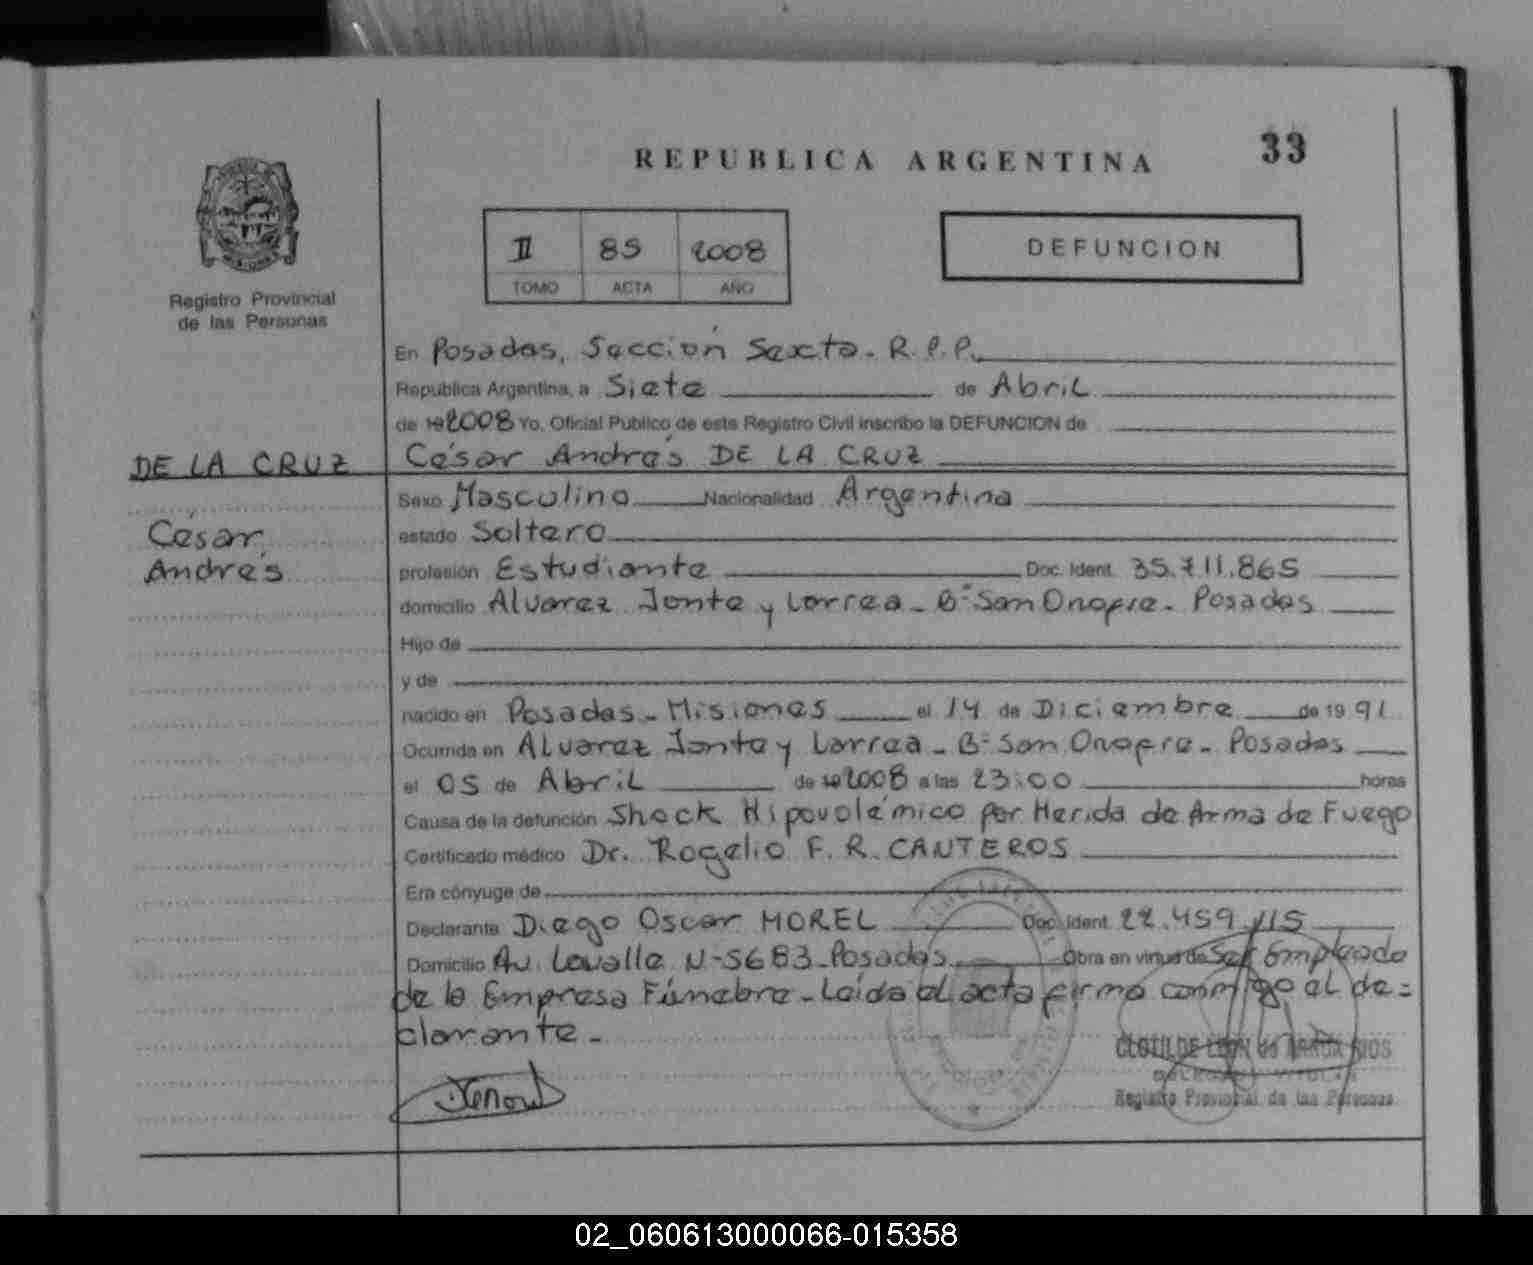 REPUBLICA ARGENTINA
33
II 85 2008
TOMO ACTA AÑO
DEFUNCION
Registro Provincial
de las Personas
En Posadas, Sección Sexta - R.P.P.
Republica Argentina, a Siete de Abril
de 192008 Yo, Oficial Público de este Registro Civil inscribo la DEFUNCION de
César Andrés DE LA CRUZ
DE LA CRUZ
César
Andrés
Sexo Masculino Nacionalidad Argentina
estado Soltero
profesión Estudiante Doc. Ident. 35.711.865
domicilio Alvarez Jonte y Larrea - Bº San Onofre - Posadas
Hijo de
y de
nacido en Posadas - Misiones el 14 de Diciembre de 1991
Ocurrida en Alvarez Jonte y Larrea - Bº San Onofre - Posadas
el 05 de Abril de 192008 a las 23:00 horas
Causa de la defunción Shock Hipovolémico por Herida de Arma de Fuego
Certificado médico Dr. Rogelio F. R. CANTEROS
Era cónyuge de
Declarante Diego Oscar MOREL Doc. Ident. 22.459.115
Domicilio Av. Lavalle N-5683 - Posadas Obra en virtud de Ser Empleado
de la Empresa Fúnebre - Leída el acta firma conmigo el de=
clarante -
CLOTILDE
Registro Provincial de las Personas
02_060613000066-015358